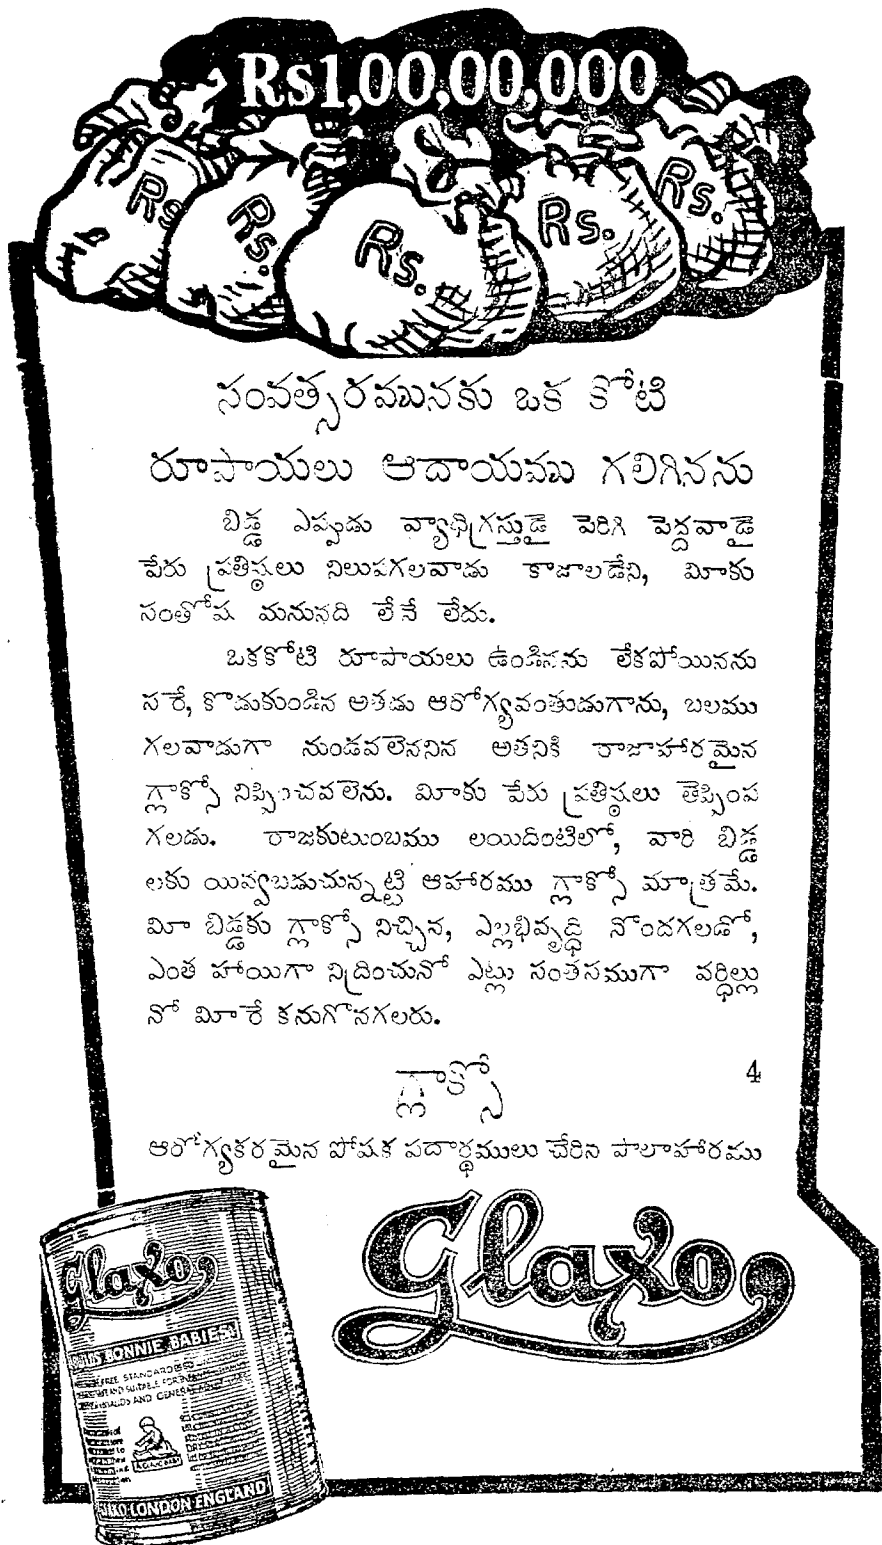 Rs1,00,00,000
Rs Rs. Rs. Rs. Rs.
సంవత్సరమునకు ఒక కోటి
రూపాయలు ఆదాయము గలిగినను
బిడ్డ ఎప్పుడు వ్యాధిగ్రస్తుడై పెరిగి పెద్దవాడై
పేరు ప్రతిష్ఠలు నిలుపగలవాడు కాజాలడేని, మీకు
సంతోష మనునది లేనే లేదు.
ఒకకోటి రూపాయలు ఉండినను లేకపోయినను
సరే, కొడుకుండిన అతడు ఆరోగ్యవంతుడుగాను, బలము
గలవాడుగా నుండవలెననిన అతనికి రాజాహారమైన
గ్లాక్సో నిప్పించవలెను. మీకు పేరు ప్రతిష్ఠలు తెప్పింప
గలడు. రాజకుటుంబము లయిదింటిలో, వారి బిడ్డ
లకు యివ్వబడుచున్నట్టి ఆహారము గ్లాక్సో మాత్రమే.
మీ బిడ్డకు గ్లాక్సో నిచ్చిన, ఎల్లభివృద్ధి నొందగలడో,
ఎంత హాయిగా నిద్రించునో ఎట్లు సంతసముగా వర్ధిల్లు
నో మీరే కనుగొనగలరు.
గ్లాక్సో
4
ఆరోగ్యకరమైన పోషక పదార్థములు చేరిన పాలాహారము
Glaxo
Glaxo
BONNIE BABIES
FREE STANDARDISED
AND SUITABLE FOR
INVALIDS AND GENERAL
GLAXO LONDON ENGLAND